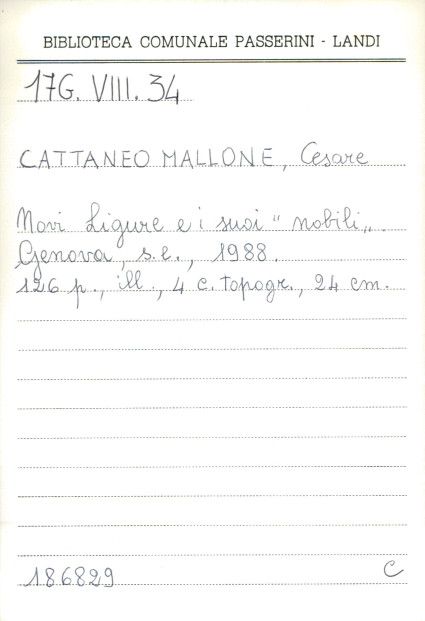 BIBLIOTECA COMUNALE PASSERINI - LANDI
17G. VIII. 34
CATTANEO MALLONE, Cesare
Novi Ligure e i suoi " nobili „.
Genova, s.e., 1988.
126 p., ill., 4 c. topogr., 24 cm.
186829 C